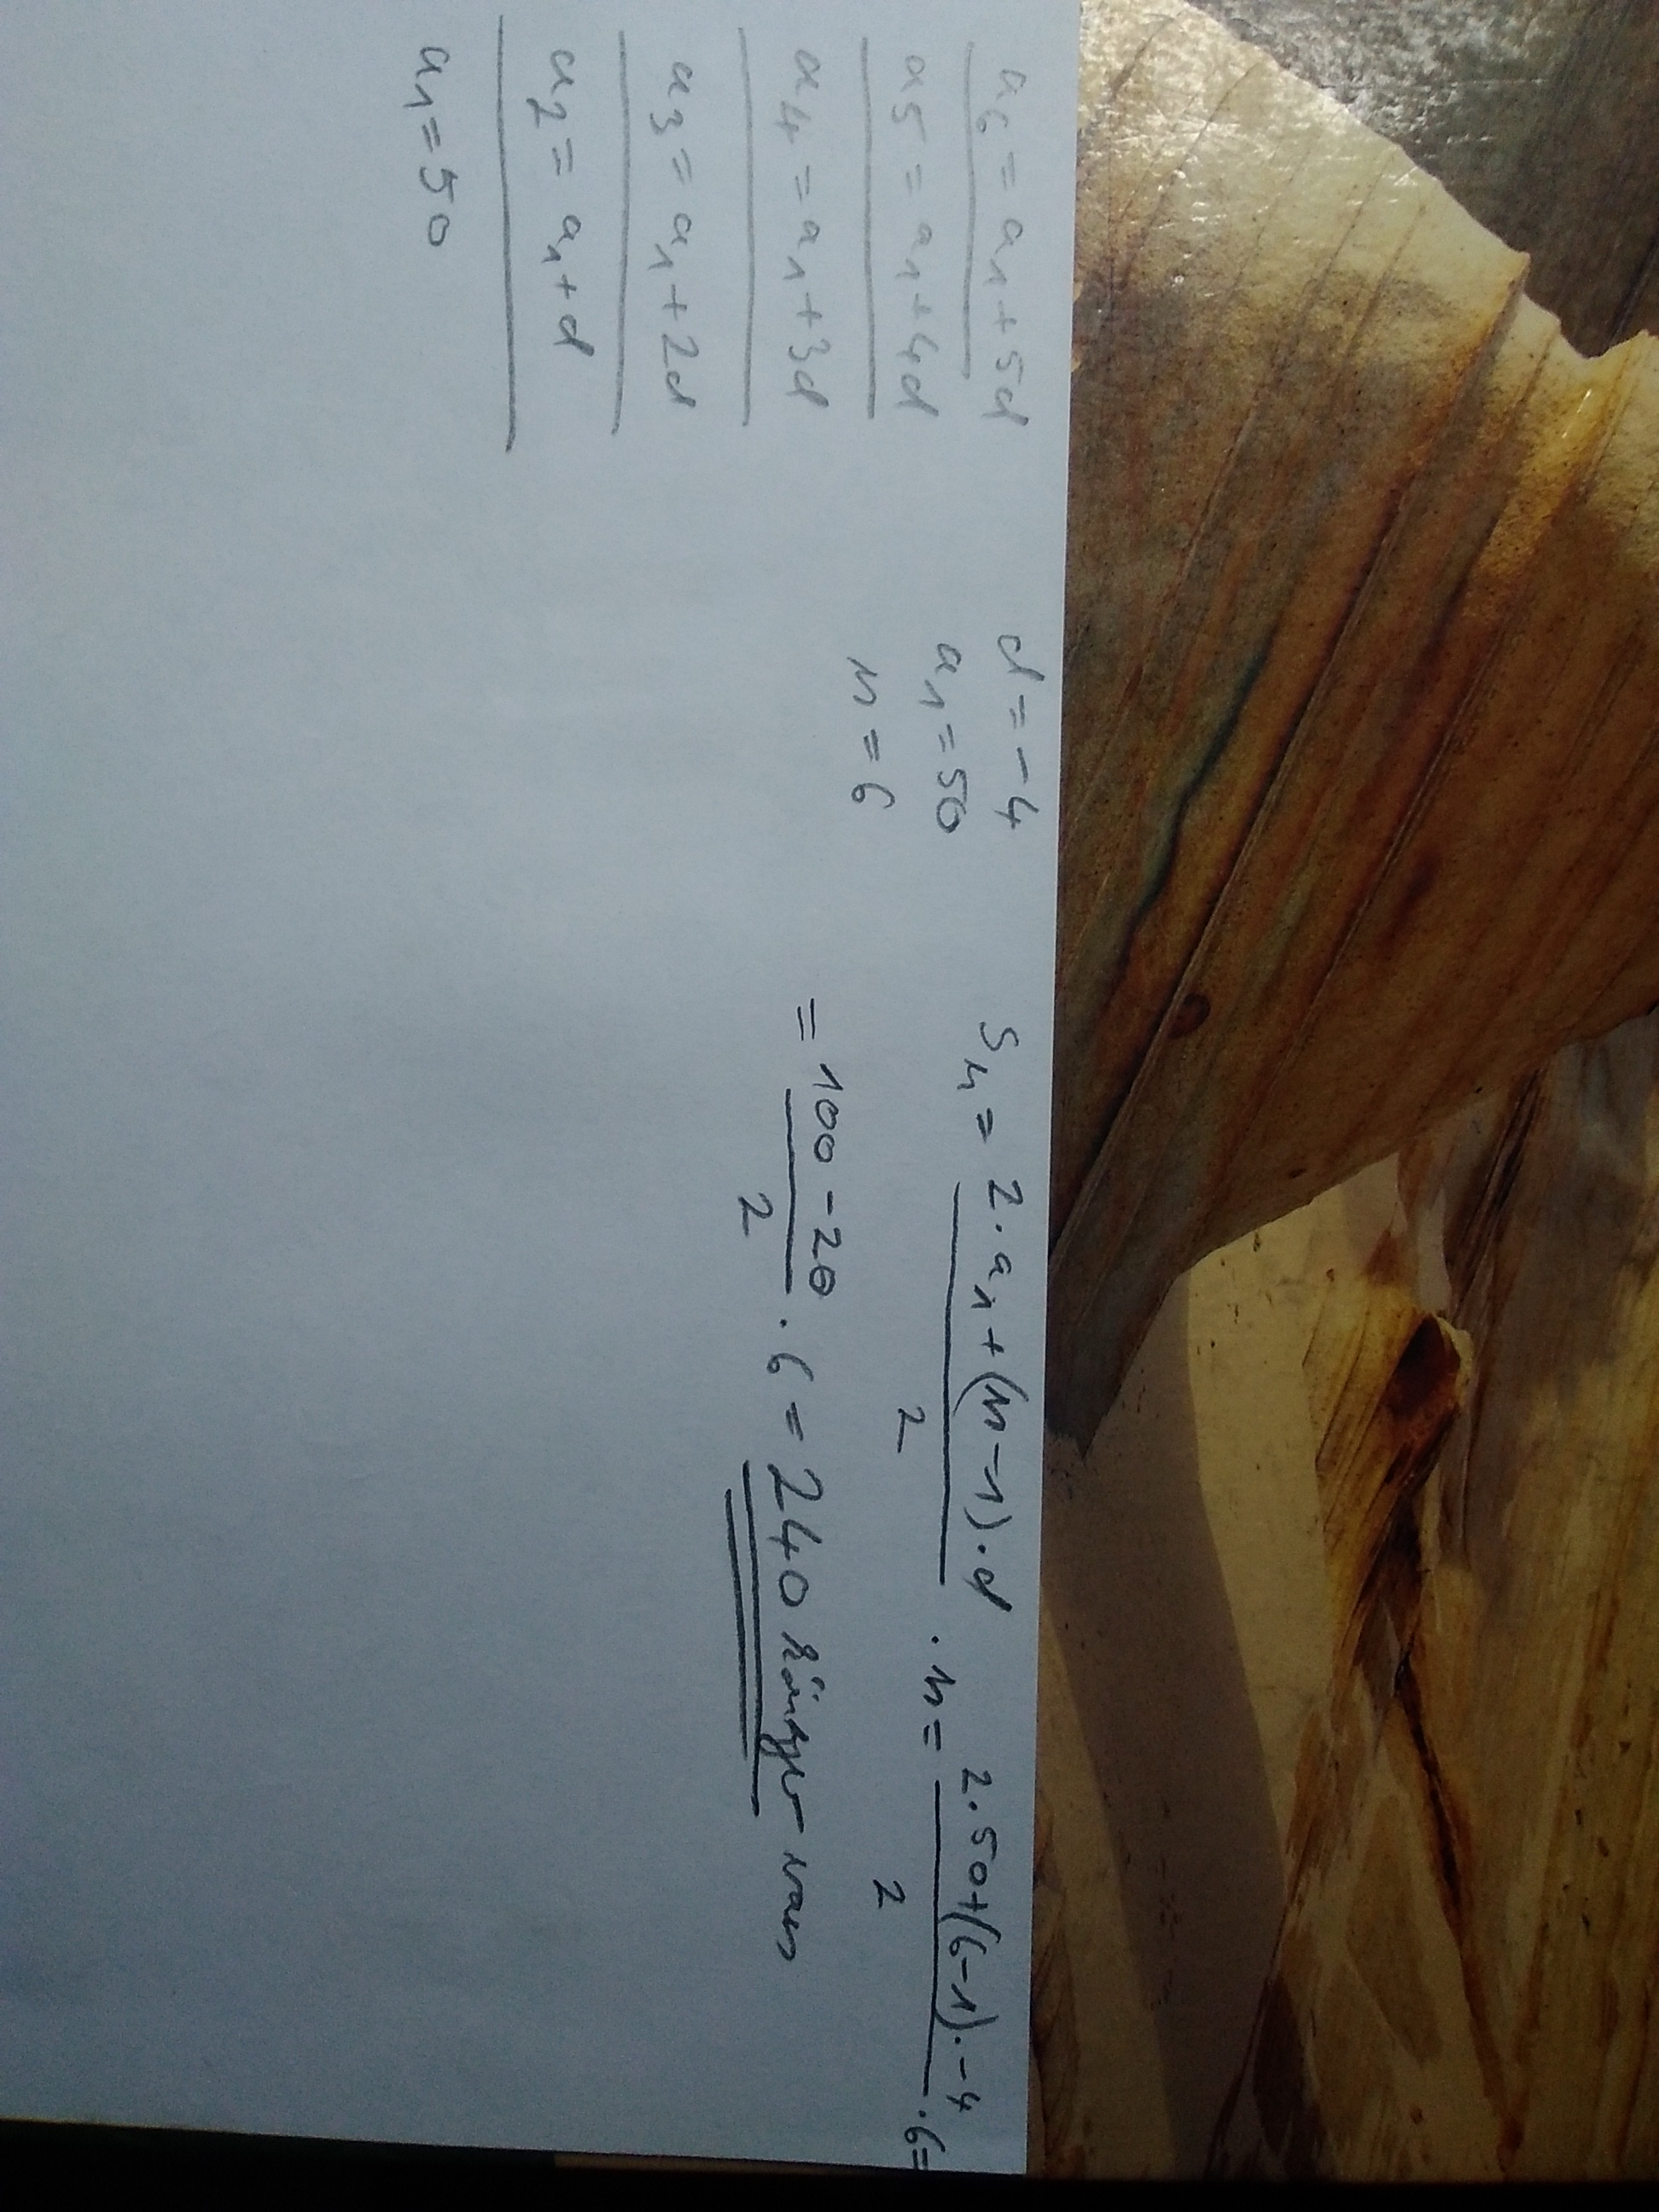 a6 = a1 + 5d
a5 = a1 + 4d
a4 = a1 + 3d
a3 = a1 + 2d
a2 = a1 + d
a1 = 50
d = -4
a1 = 50
n = 6
Sn = 2·a1+(n-1)·d / 2 · n = 2·50+(6-1)·-4 / 2 · 6 =
= 100-20 / 2 · 6 = 240 könyv van